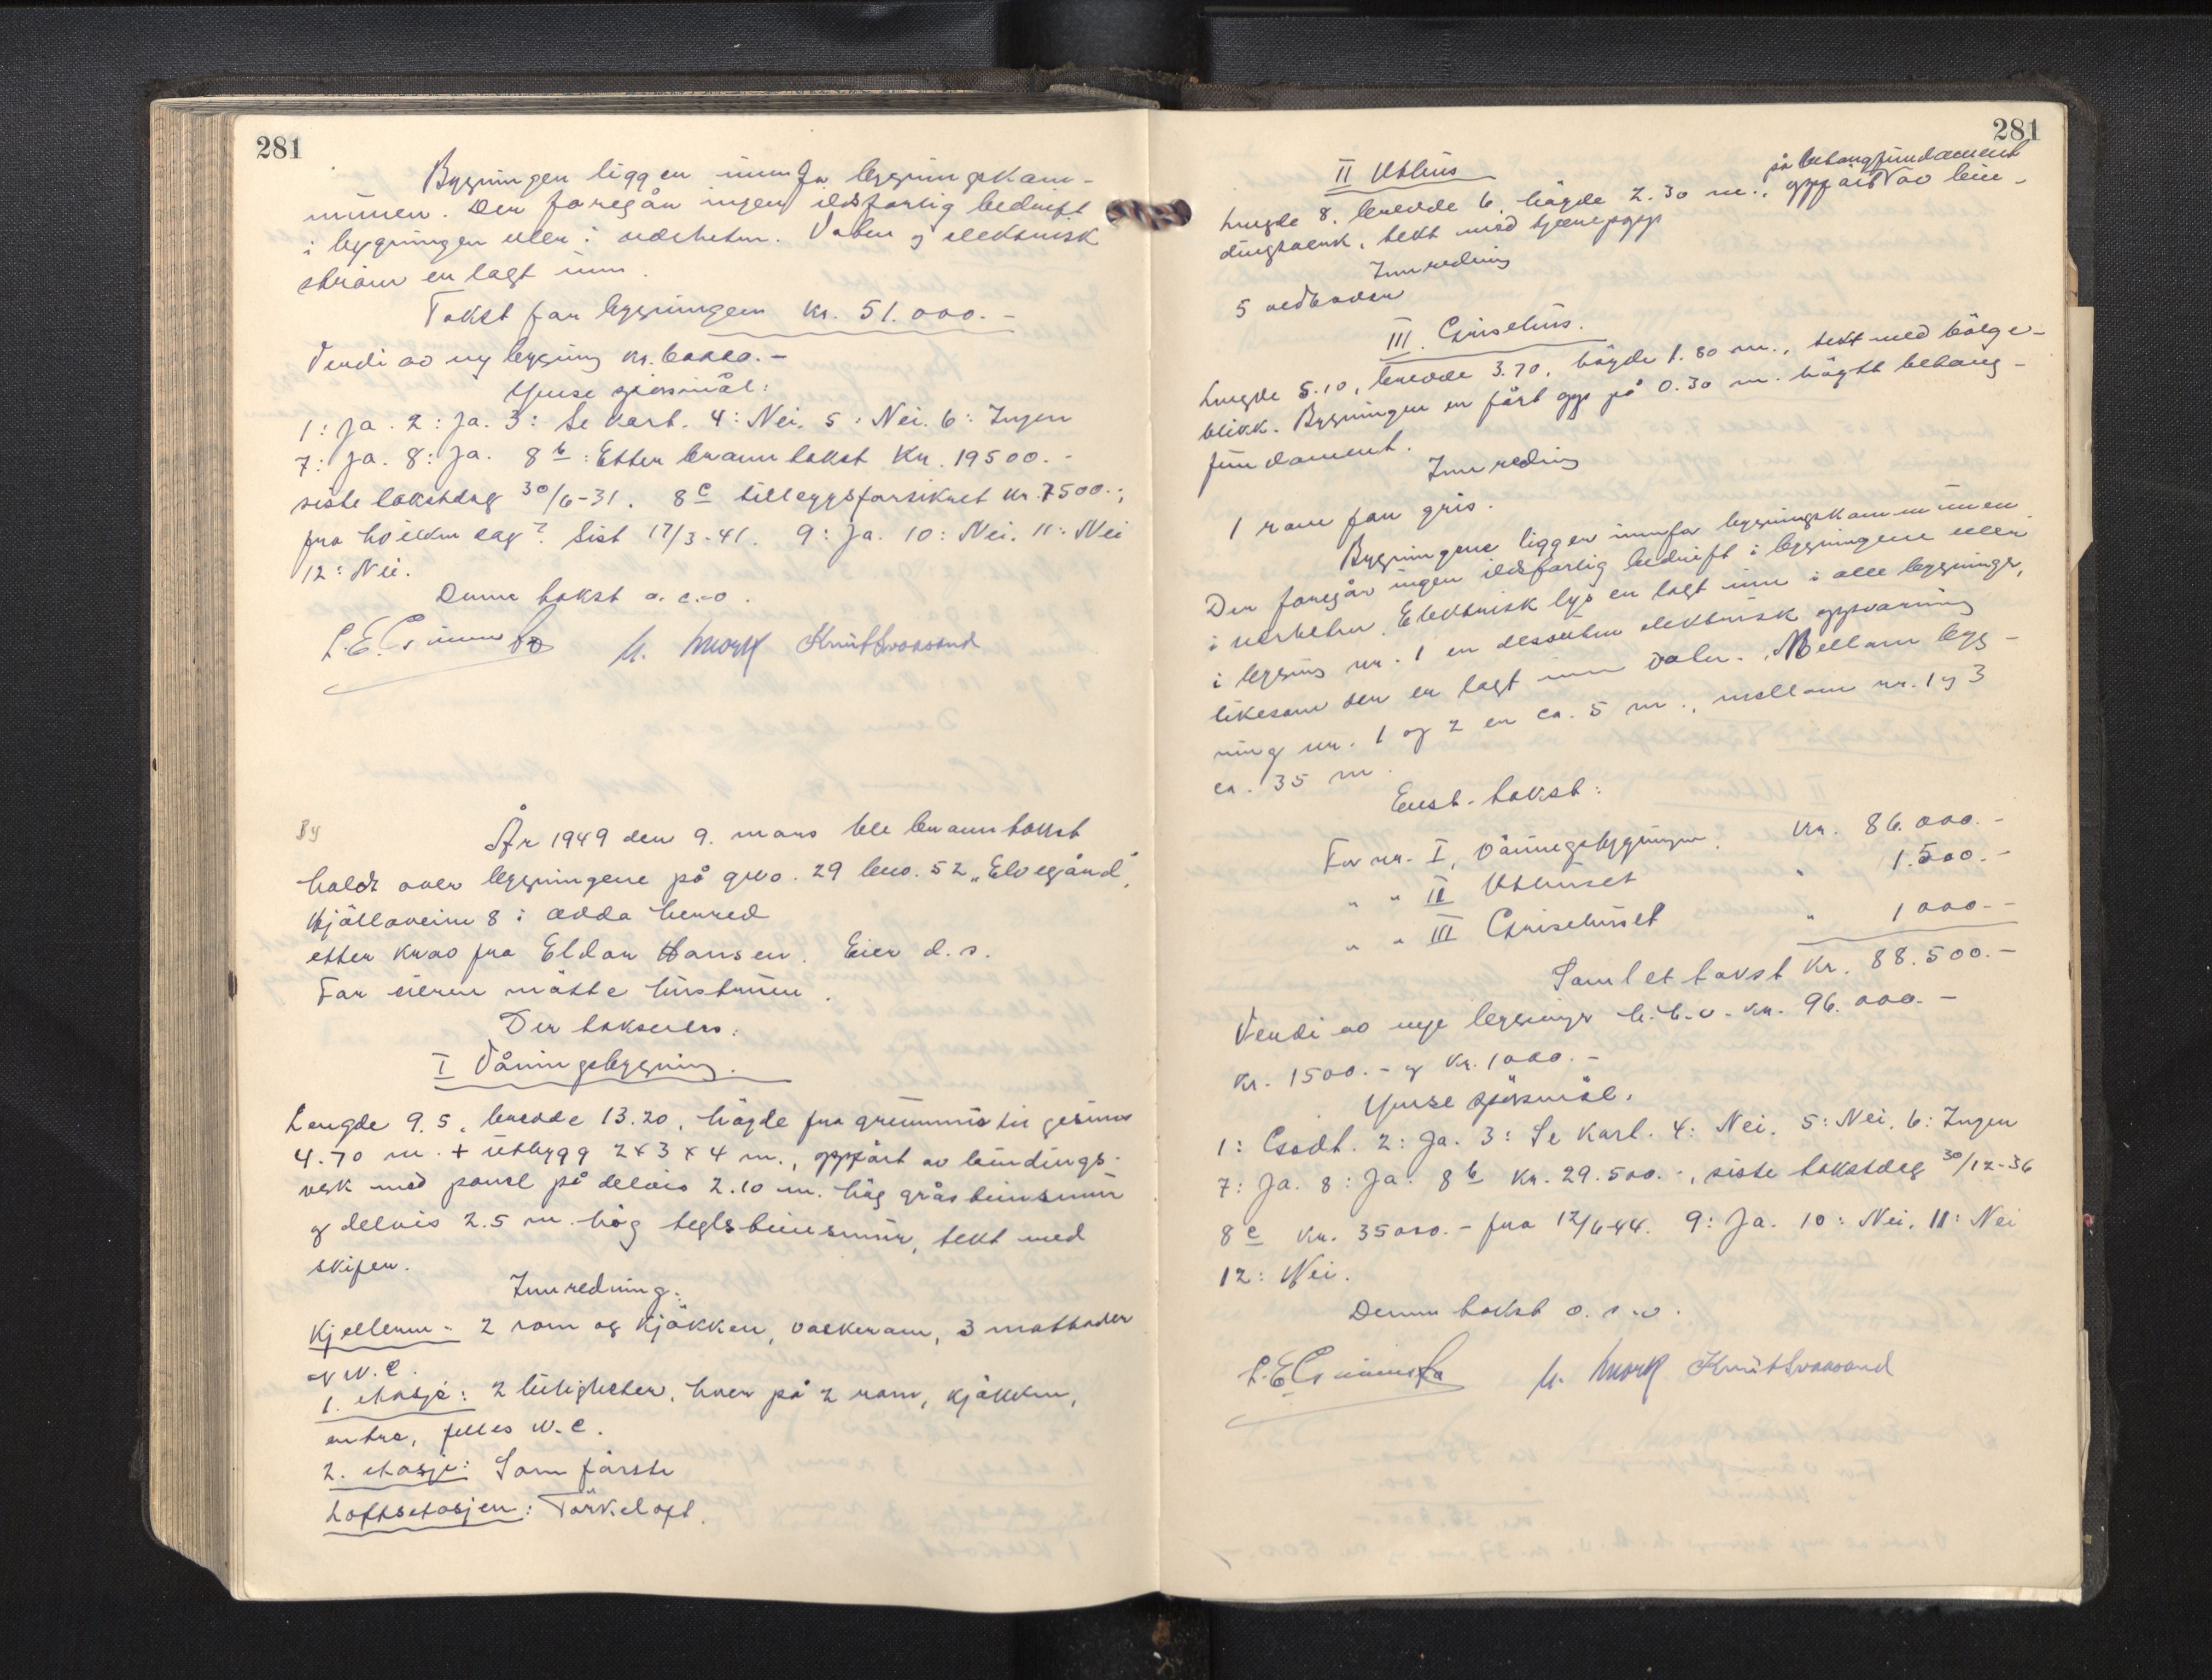 281
Bygningen ligger innenfor bygningskom-
munen. Der foregår ingen ildsfarlig bedrift
i bygningen eller i nærheten. Vaten og elektrisk
strøm er lagt inn.
Takst for bygningen kr. 51.000.-
Verdi av ny bygning kr. 60000.-
Ymse spörsmål:
1: Ja. 2: Ja. 3: Se kart. 4: Nei. 5: Nei. 6: Ingen
7: Ja. 8: Ja. 8b: Etter branntakst Kr. 19500.-
siste takstdag 30/6-31. 8c tilleggsforsikret kr. 7500.-;
fra hvilken dag? Sist 17/3-41. 9: Ja. 10: Nei. 11: Nei
12: Nei.
Denne takst o.s.v.
Knut Svaasand
År 1949 den 9. mars ble branntakst
holdt over bygningene på gno. 29 bno. 52 „Elvegård",
8 i Odda herred
etter krav fra Eldar Hansen. Eier d.s.
For eieren mötte hustruen.
Der takseres:
I Våningsbygning.
Lengde 9.5, bredde 13.20, högde fra grunnmur til gesims
4.70 m. + utbygg 2x3x4 m., oppfört av bindings-
verk med panel på delvis 2.10 m. hög gråsteinsmur
og delvis 2.5 m. hög teglsteinsmur, tekt med
skifer.
Innredning:
Kjelleren: 2 rom og kjökken, vaskerom, 3 matboder
og W.C.
1. etasje: 2 leiligheter, hver på 2 rom, kjökken,
entre, felles W.C.
2. etasje: Som förste
Loftsetasjen: Törkeloft.
281
II Uthus
på betongfundament
Lengde 8, bredde 6, högde 2.30 m., oppfört av bin-
dingsverk, tekt med tjærepapp
Innredning
5 vedboder
III Grisehus.
Lengde 5.10, bredde 3.70, högde 1.80 m., tekt med bölge-
blikk. Bygningen er fört opp på 0.30 m. högt betong-
fundament.
Innredning
1 rom for gris.
Bygningene ligger innfor bygningskommunen
Der foregår ingen ildsfarlig bedrift i bygningene eller
i nærheten. Elektrisk lys er lagt inn i alle bygninger,
i bygning nr. 1 er dessuten elektrisk oppvarming
likesom der er lagt inn vaten. Mellom byg-
ning nr. 1 og 2 er ca. 5 m., mellom nr. 1 og 3
ca. 35 m.
Enst. takst:
For nr. I, Våningsbygningen Kr. 86.000.-
" " II Uthuset " 1.500.-
" " III Grisehuset " 1000.-
Samlet takst Kr. 88.500.-
Verdi av nye bygninger h.h.v. kr. 96.000.-
Kr. 1500.- og Kr. 1000.-
Ymse spörsmål.
1: Godt. 2: Ja. 3: Se kart. 4: Nei. 5: Nei. 6: Ingen
7: Ja. 8: Ja. 8b Kr. 29.500.-, siste takstdag 30/12-36
8c Kr. 35000.- fra 12/6-44. 9: Ja. 10: Nei. 11: Nei
12: Nei.
Denne takst o.s.v.
Knut Svaasand